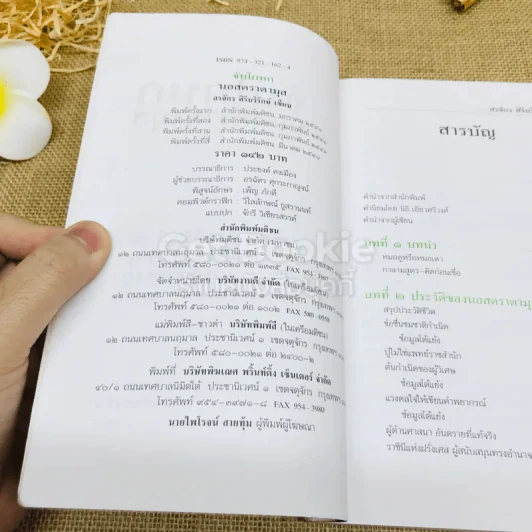 ISBN 974 - 321 - 162 - 4
จับโกหก
นอสตราดามุส
สรจักร ศิริบริรักษ์ เขียน
พิมพ์ครั้งแรก สำนักพิมพ์มติชน, มกราคม
พิมพ์ครั้งที่สอง สำนักพิมพ์มติชน, กุมภาพันธ์
พิมพ์ครั้งที่สาม สำนักพิมพ์มติชน, กุมภาพันธ์
พิมพ์ครั้งที่สี่ สำนักพิมพ์มติชน, มีนาคม
ราคา ๑๔๒ บาท
บรรณาธิการ : ประยงค์ คงเมือง
ผู้ช่วยบรรณาธิการ : อรฉัตร ศุกระกาญจน์
พิสูจน์อักษร : เพ็ญ ภักดี
คอมพิวต์กราฟิก : วิไลลักษณ์
แบบปก : จักรี วิเชียรสรรค์
สำนักพิมพ์มติชน
บริษัทมติชน จำกัด (มหาชน)
๑๒ ถนนเทศบาลนฤมาล ประชานิเวศน์ ๑ เขตจตุจักร กรุงเทพฯ
โทรศัพท์ ๕๘๐-๐๐๒๑ ต่อ FAX
จัดจำหน่ายโดย บริษัทงานดี จำกัด (ในเครือมติชน)
๑๒ ถนนเทศบาลนฤมาล ประชานิเวศน์ ๑ เขตจตุจักร กรุงเทพฯ
โทรศัพท์ ๕๘๐-๐๐๒๑ ต่อ FAX 580
แม่พิมพ์สี-ขาวดำ บริษัทพิมพ์สี (ในเครือมติชน)
๑๒ ถนนเทศบาลนฤมาล ประชานิเวศน์ ๑ เขตจตุจักร กรุงเทพฯ
โทรศัพท์ ๕๘๐-๐๐๒๑ ต่อ ๒๔๐๐-๒
พิมพ์ที่ บริษัทพิฆเณศ พริ้นท์ติ้ง เซ็นเตอร์ จำกัด
๔๐/๑ ถนนเทศบาลนิมิตใต้ ประชานิเวศน์ ๑ เขตจตุจักร กรุงเทพฯ
โทรศัพท์ ๙๕๔-๓๙๗๑-๘ FAX 954 - 3980
นายไพโรจน์ สายทุ้ม ผู้พิมพ์ผู้โฆษณา
GetBookie
สรจักร
สารบัญ
คำนำจากสำนักพิมพ์
คำนิยมโดย นิธิ เอียวศรีวงศ์
คำนำจากผู้เขียน
บทที่ ๑ บทนำ
หมอดูหรือหมอเดา
กาลามสูตร-คิดก่อนเชื่อ
บทที่ ๒ ประวัติของนอสตราดามุส
สรุปประวัติชีวิต
ข้อชื่นชมชาติกำเนิด
ข้อมูลโต้แย้ง
ปู่ไม่ใช่แพทย์ราชสำนัก
ต้นกำเนิดของผู้วิเศษ
ข้อมูลโต้แย้ง
แรงดลใจให้เขียนคำพยากรณ์
ข้อมูลโต้แย้ง
ผู้ต้านศาสนา อันตรายที่แท้จริง
ราชินีแห่งฝรั่งเศส ผู้สนับสนุนทรงอำนาจ